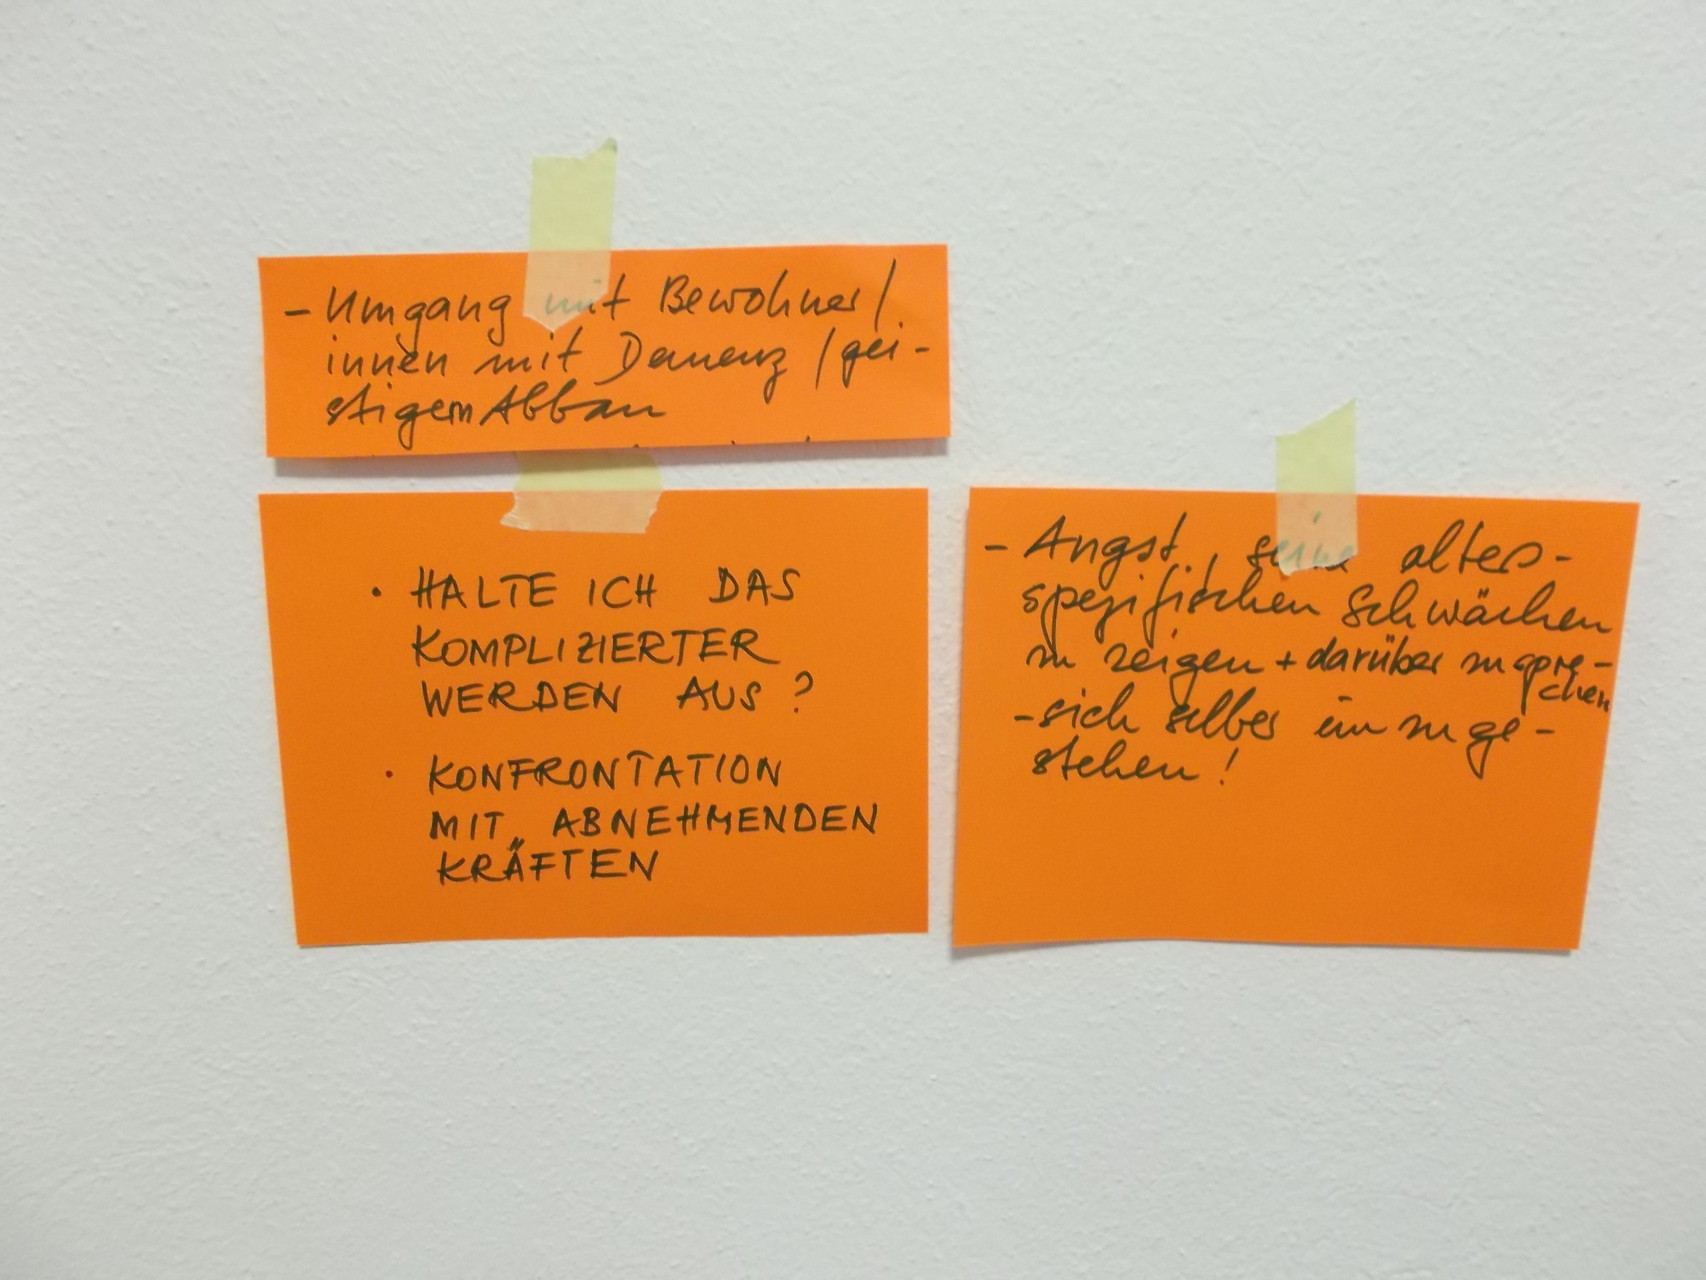 - Umgang mit Bewohner/
innen mit Demenz / gei-
stigem Abbau
• HALTE ICH DAS
KOMPLIZIERTER
WERDEN AUS?
• KONFRONTATION
MIT ABNEHMENDEN
KRÄFTEN
- Angst, seine alters-
spezifischen Schwächen
zu zeigen + darüber zu spre-
chen
- sich selber ein zu ge-
stehen!